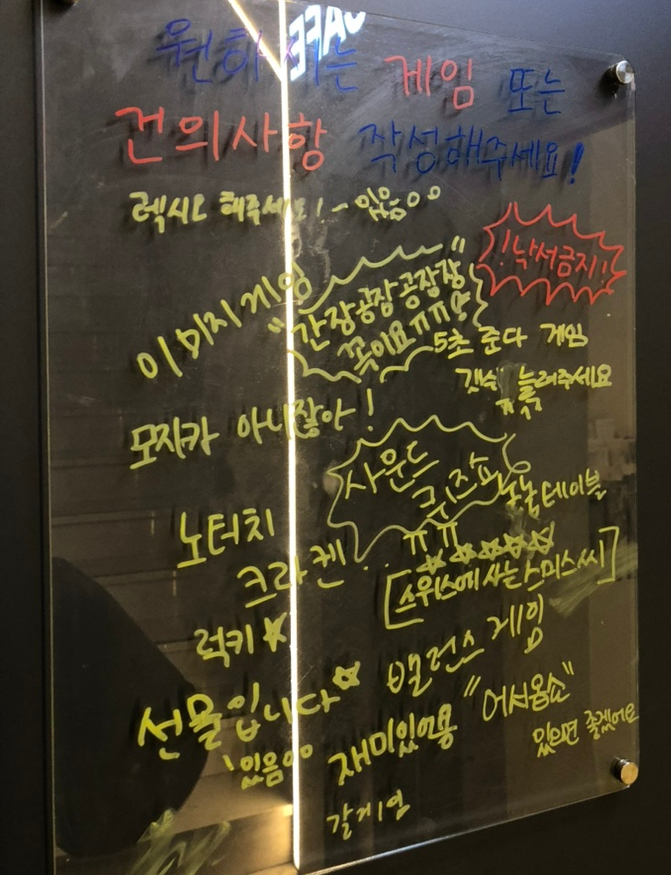 원하시는 게임 또는
건의사항 작성해주세요!
렉시오 해주세요! - 있음
!낙서금지!
이미지게임
"간장공장공장장"
꼭이요ㅠㅠ
5초 준다 게임
갯수 늘려주세요
ㅠㅠ
모자가 아니잖아!
사운드
퀴즈쇼
테이블
ㅠㅠ
노터치
크라켄..
[스위스에 사는 스미스씨]
럭키
밸런스 게임
선물입니다
있음
"어서옵쇼"
있으면 좋겠어요
재미있어용
갈게임